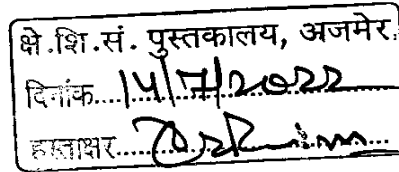 क्षे.शि.सं. पुस्तकालय, अजमेर.
दिनांक....14/7/2022
हस्ताक्षर